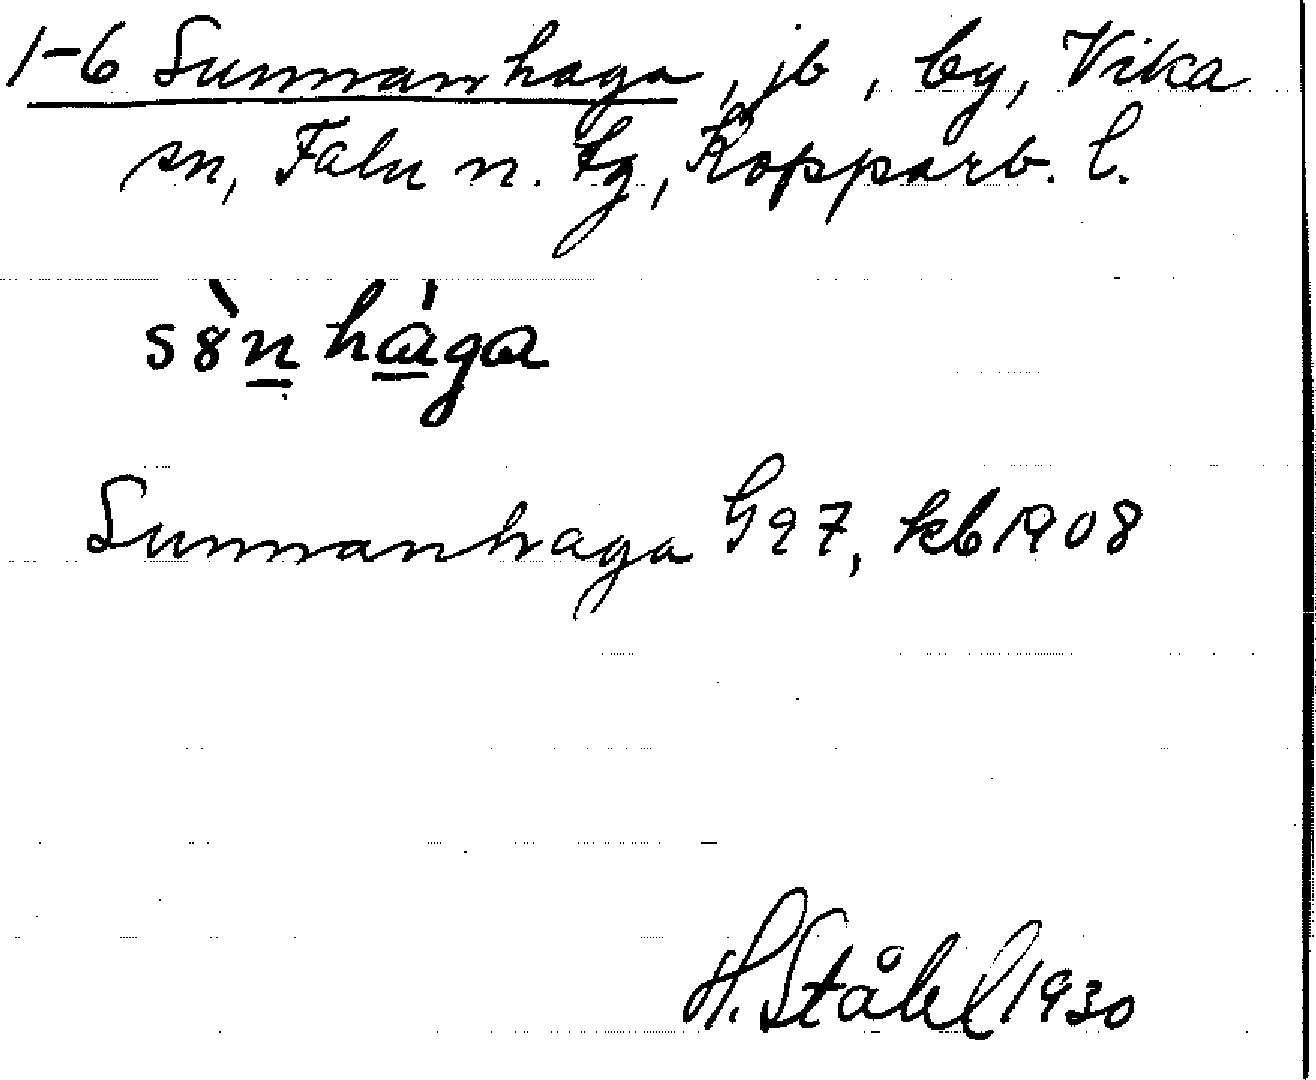 1-6 Sunnanhaga, jb, by, Vika
sn, Falu n. tg, Kopparb. l.
s8̀n hága
Sunnanhaga G27, kb 1908
H. Ståhl 1930